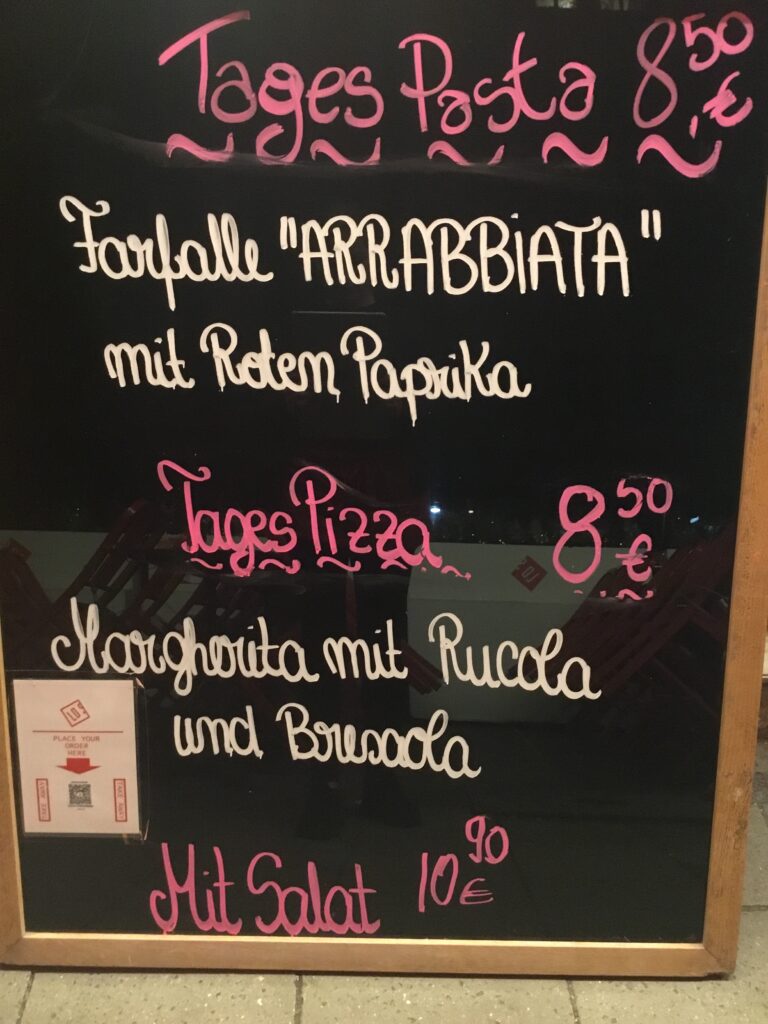 Tages Pasta 8,50 €
Farfalle "ARRABBiATA"
mit Roten Paprika
Tages Pizza 8 50 €
Margherita mit Rucola
und Bresaola
PLACE YOUR
ORDER
HERE
Mit Salat 10 90 €